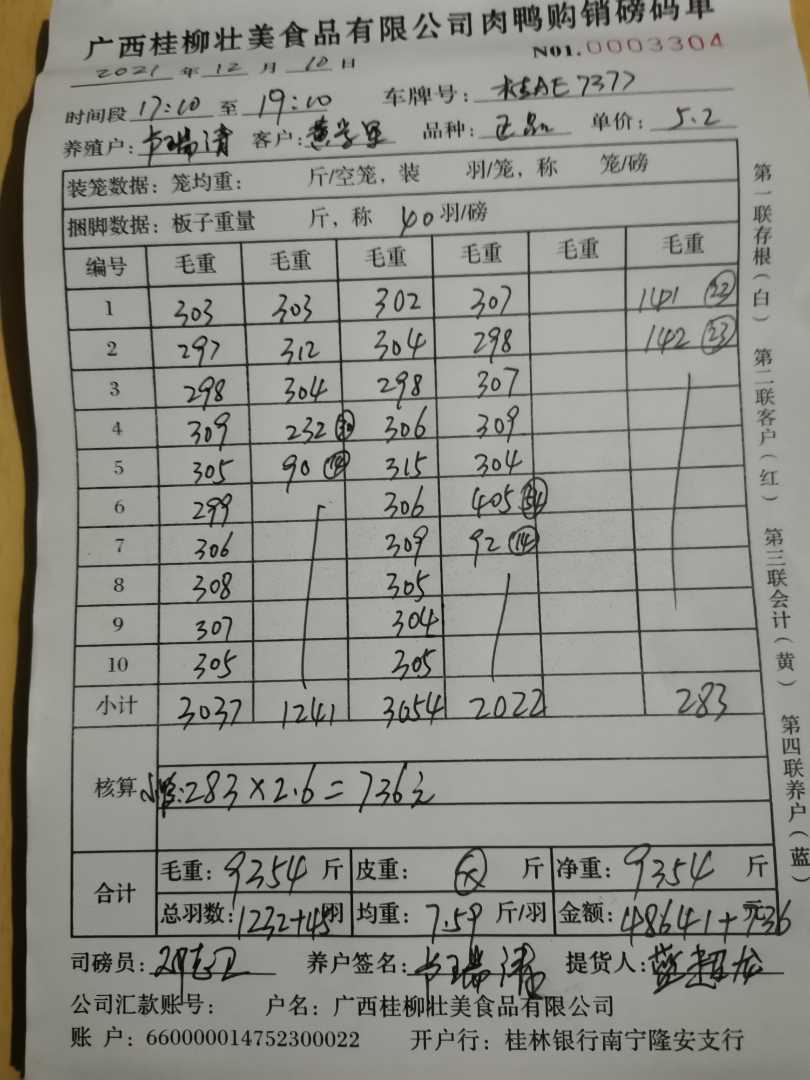 广西桂柳壮美食品有限公司肉鸭购销磅码单
NO1.0003304
2021 年 12 月 10 日
时间段 17:10 至 19:10 车牌号: 桂AE7377
养殖户: 卢瑞清 客户: 品种: 正品 单价: 5.2
装笼数据: 笼均重: 斤/空笼, 装 羽/笼, 称 笼/磅
捆脚数据: 板子重量 斤, 称 40 羽/磅
编号 毛重 毛重 毛重 毛重 毛重 毛重
1 303 303 302 307 141 (22)
2 297 312 304 298 142 (23)
3 298 304 298 307
4 309 232 (30) 306 309
5 305 90 315 304
6 299 306 405 (54)
7 306 309 92 (14)
8 308 305
9 307 304
10 305 305
小计 3037 1241 3054 2022 283
核算 :283×2.6=736元
合计 毛重: 9354 斤 皮重: 斤 净重: 9354 斤
总羽数: 1232+45 羽 均重: 7.59 斤/羽 金额: 48641+736 元
司磅员: 养户签名: 卢瑞清 提货人:
公司汇款账号: 户名: 广西桂柳壮美食品有限公司
账 户: 660000014752300022 开户行: 桂林银行南宁隆安支行
第一联存根(白) 第二联客户(红) 第三联会计(黄) 第四联养户(蓝)